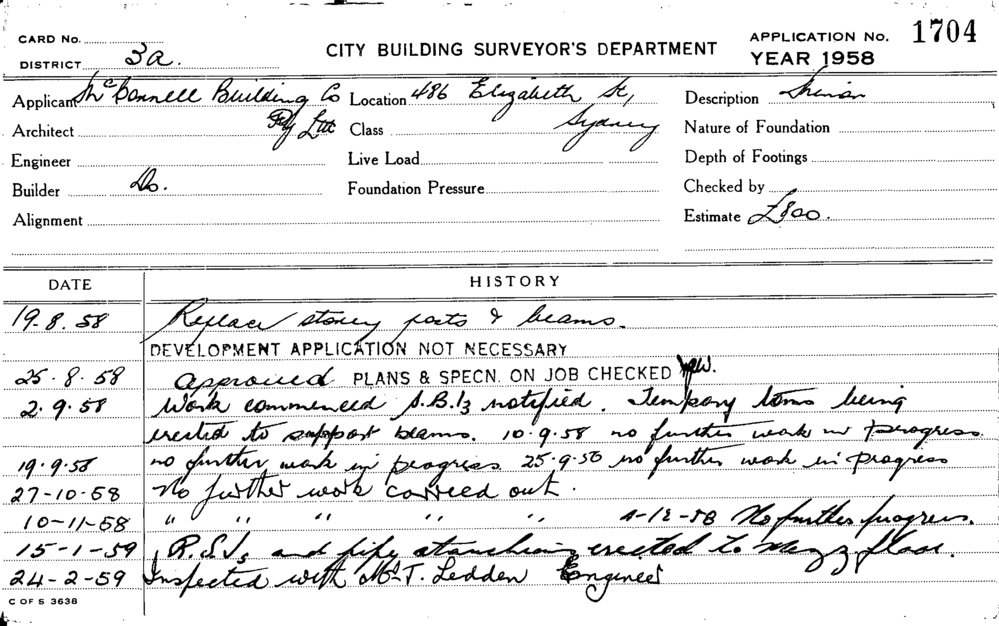 CARD No.
DISTRICT 3a.
CITY BUILDING SURVEYOR'S DEPARTMENT
APPLICATION No. 1704
YEAR 1958
Applicant McConnell Building Co Pty Ltd
Location 486 Elizabeth St, Sydney
Description
Architect
Class
Nature of Foundation
Engineer
Live Load
Depth of Footings
Builder Do.
Foundation Pressure
Checked by
Alignment
Estimate £300.
DATE HISTORY
19-8.58 Replace storey posts & beams.
DEVELOPMENT APPLICATION NOT NECESSARY
25.8.58 Approved PLANS & SPECN. ON JOB CHECKED
2.9.58 Work commenced notified. being
erected to support beams. 10.9.58 no further work in progress
19.9.58 no further work in progress. 25-9-58 no further work in progress
27-10-58 No further work carried out.
10-11-58 " " " " " 4-12-58 No further progress.
15-1-59 R.S.Js and pipe stanchions erected to Mezz floor.
24-2-59 Inspected with Mr T. Ledden Engineer
C OF S 3638